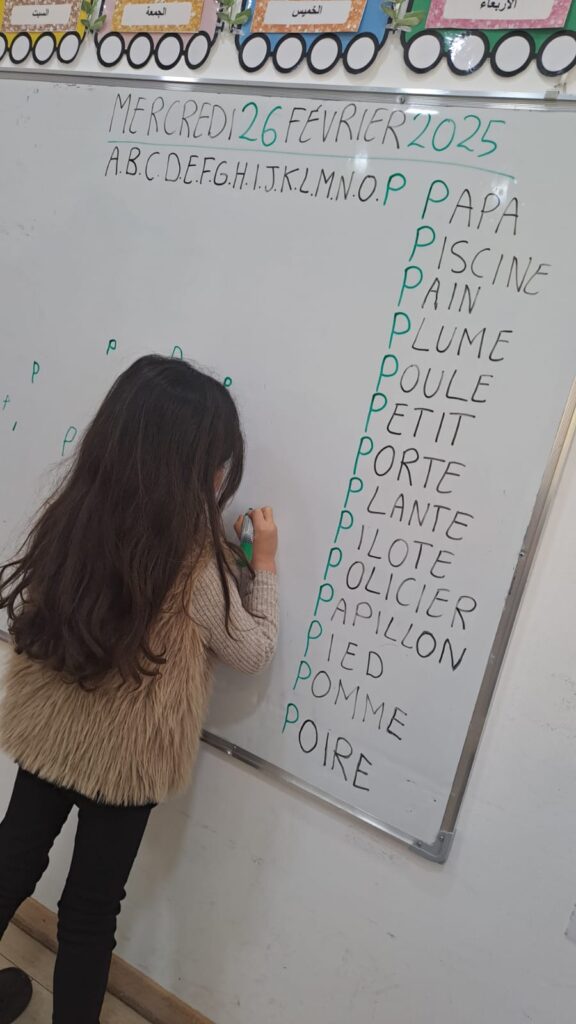 السبت
الجمعة
الخميس
الأربعاء
MERCREDI 26 FÉVRIER 2025
A.B.C.D.E.F.G.H.I.J.K.L.M.N.O.P
PAPA
PISCINE
PAIN
PLUME
POULE
PETIT
PORTE
PLANTE
PILOTE
POLICIER
PAPILLON
PIED
POMME
POIRE
P
P
P